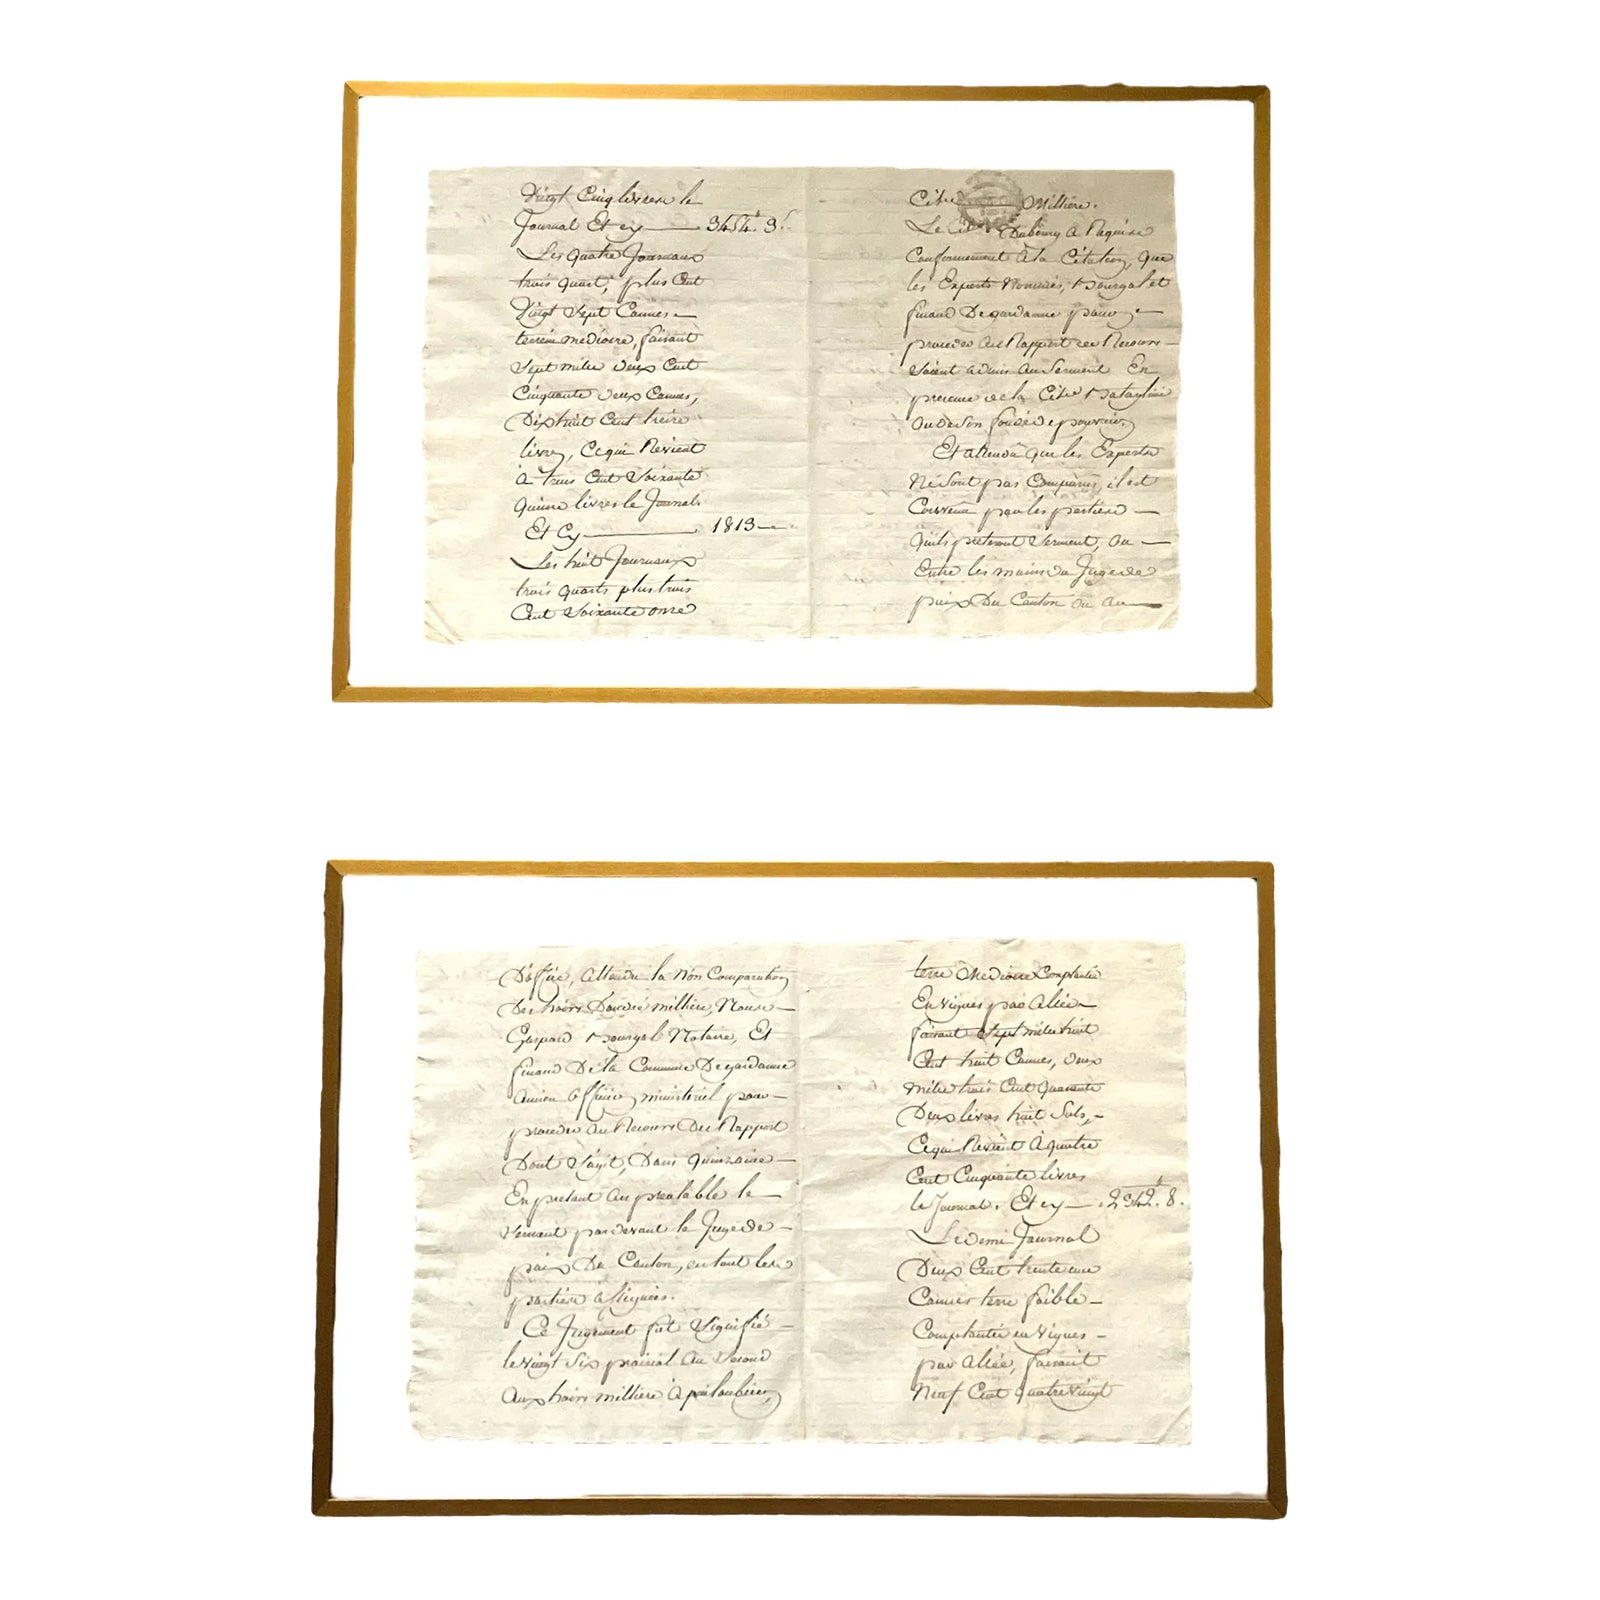 Vingt Cinq livres le
Journal Et cy 3454 3
Les quatre Journaux
trois quart, plus Cent
Vingt Sept Cannes
terrein mediocre, faisant
Sept mille deux Cent
Cinquante deux Cannes,
Dix huit Cent treize
livres, Ce qui Revient
a trois Cent Soixante
quinze livres le Journal.
Et Cy 1813
Les huit Journaux
trois quarts plus trois
Cent Soixante onze
Milliere.
Le Dubourg A Requise
Conformement A la Citation, que
les Experts Nommés, et
De gardanne pour
proceder au Rapport de Recours
Soient admis au Serment En
presence de la
ou de son fondé de pouvoir,
Et attendu que les Experts
Ne Sont pas Comparus, il est
Convenu par les parties
quils preteront Serment, ou
Entre les mains du Juge de
paix Du Canton ou au
D'office, attendu la Non Comparution
Des hoirs milliere, Nomme
Gaspard Notaire, Et
De la Commune De gardanne
ancien officier ministeriel pour
proceder au Recours Du Rapport
Dont S'agit, Dans quinzaine
En pretant au prealable le
Serment pardevant le Juge de
paix Du Canton, ou tout les
parties assignées.
Ce Jugement fut Signifié
le vingt Six prairial au Second
Aux hoirs milliere
terre Mediocre Complantée
En vignes par allée
faisant Sept mille huit
Cent huit Cannes, deux
mille trois Cent quarante
Deux livres huit Sols,
Ce qui Revient A quatre
Cent Cinquante livres
le Journal. Et cy 2342. 8.
Le demi Journal
Deux Cent trente une
Cannes terre faible
Complantée en vignes
par allée, faisant
Neuf Cent quatre vingt